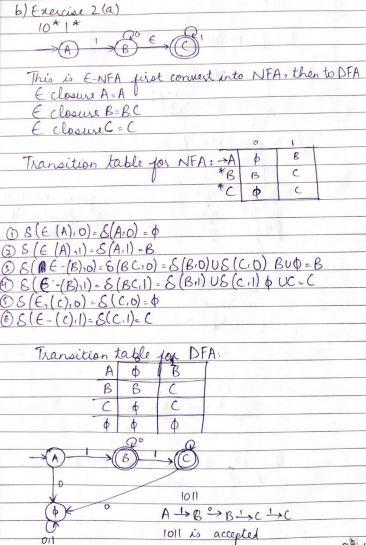 b) Exercise 2(a)
10*1*
A 1 B 0 ε C 1
This is ε-NFA first convert into NFA, then to DFA
ε closure A = A
ε closure B = BC
ε closure C = C
0 1
Transition table for NFA: →A φ B
*B B C
*C φ C
① δ(ε (A),0) = δ(A,0) = φ
② δ(ε (A),1) = δ(A,1) = B
③ δ(ε-(B),0) = δ(BC,0) = δ(B,0) U δ(C,0) B U φ = B
④ δ(ε-(B),1) = δ(BC,1) = δ(B,1) U δ(C,1) φ U C = C
⑤ δ(ε,(C),0) = δ(C,0) = φ
⑥ δ(ε-(C),1) = δ(C,1) = C
Transition table for DFA:
A φ B
B B C
C φ C
φ φ φ
A 1 B 0 1 C 1
0 0
φ
0,1
1011
A 1→ B 0→ B 1→ C 1→ C
1011 is accepted